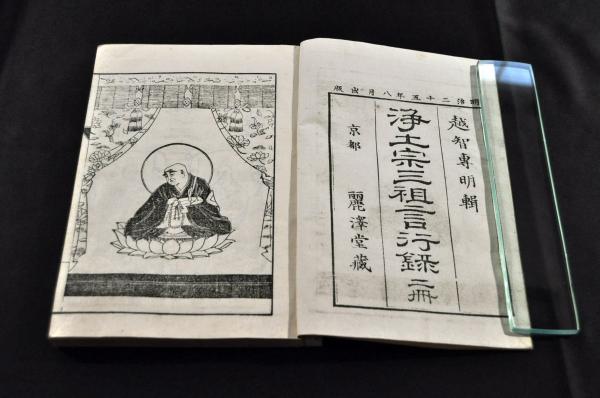 明治二十五年八月出版
越智專明輯
浄土宗三祖言行錄 二冊
京都 麗澤堂藏